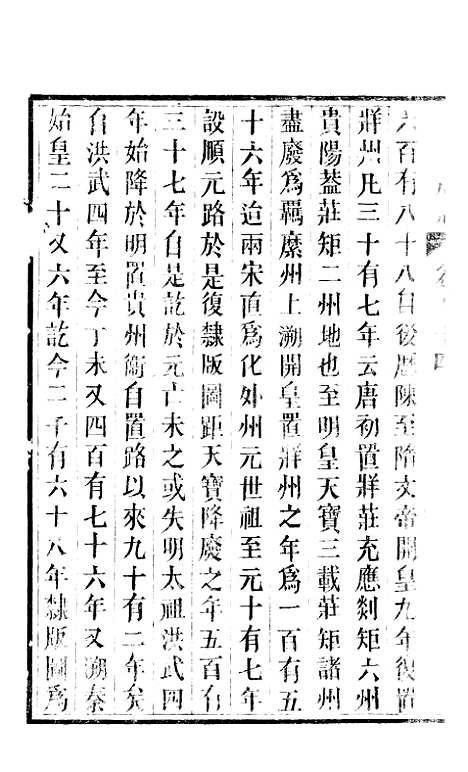 六百有八十八自後歷陳至隋文帝開皇九年復置
牂州凡三十有七年云唐初置牂莊充應剡矩六州
貴陽蓋莊矩二州地也至明皇天寶三載莊矩諸州
盡廢爲羈縻州上溯開皇置牂州之年爲一百有五
十六年迨兩宋直爲化外州元世祖至元十有七年
設順元路於是復隸版圖距天寶降廢之年五百有
三十七年自是訖於元亡未之或失明太祖洪武四
年始降於明置貴州衞自置路以來九十有二年矣
自洪武四年至今丁未又四百有七十六年又溯秦
始皇二十又六年訖今二千有六十八年隸版圖爲